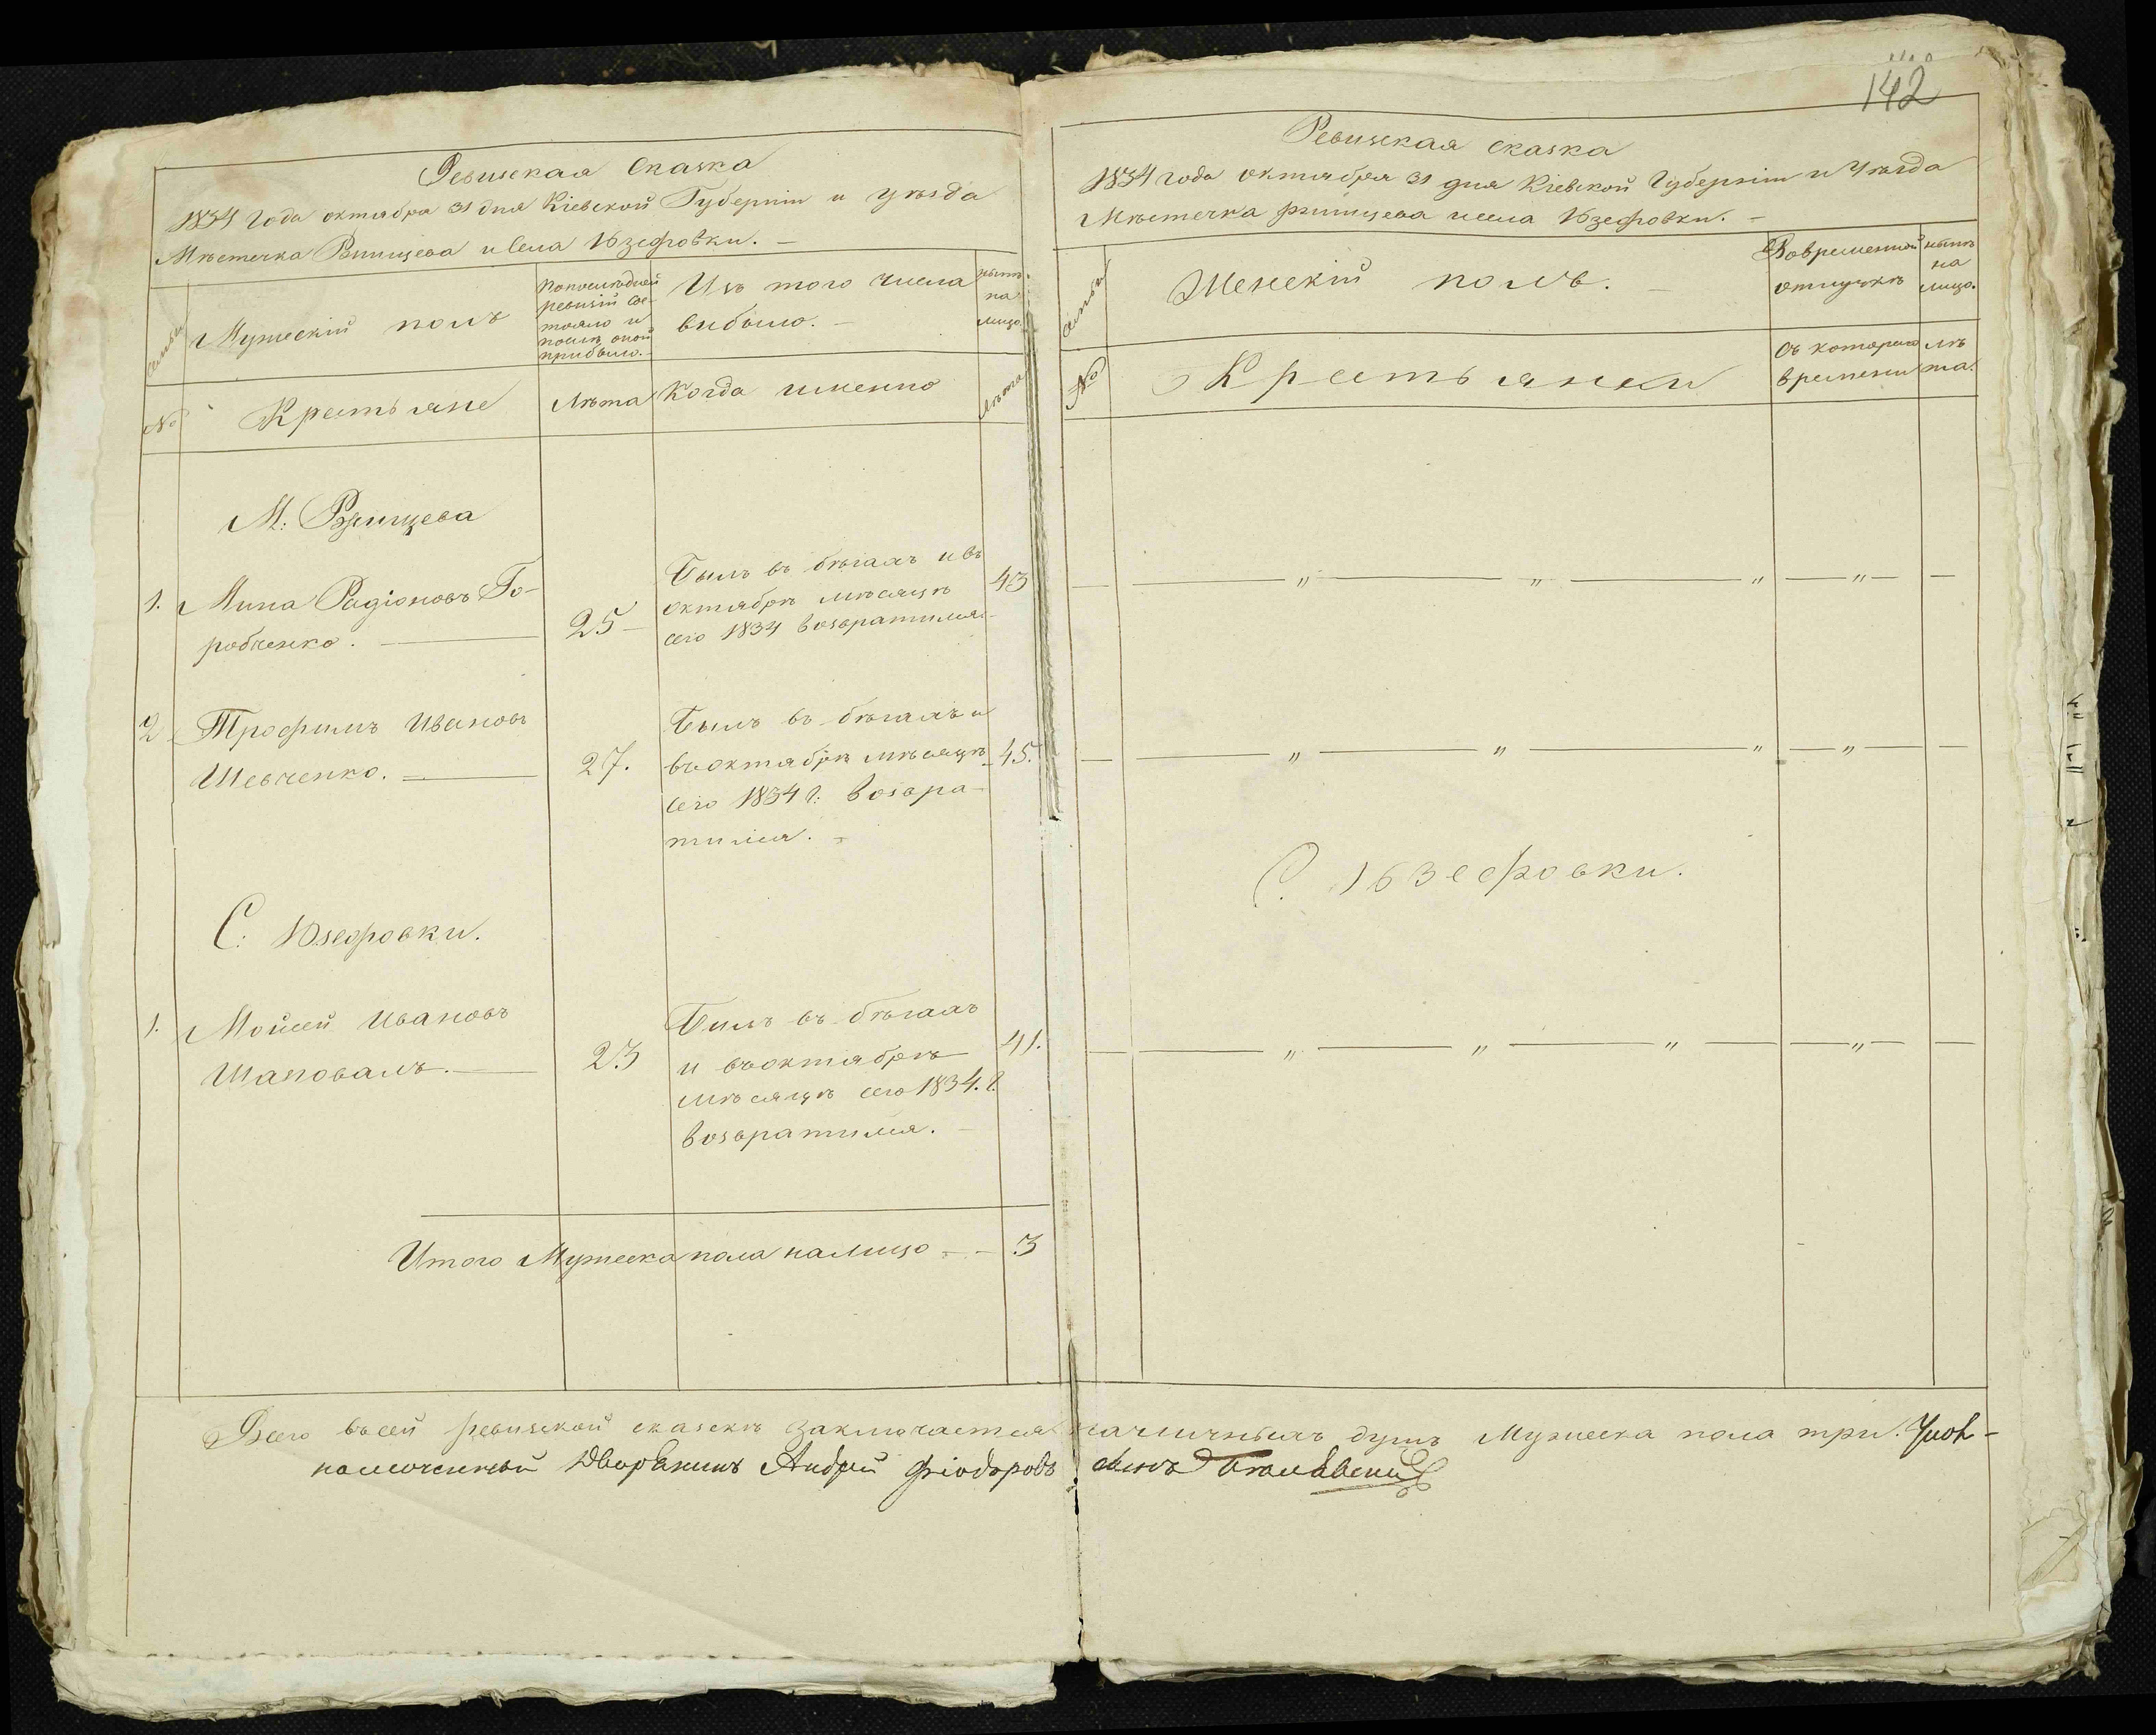 142
Ревизская Сказка
1834 Года октября 31 дня Кіевской Губерніи и уѣзда
Мѣстечка Ржищева и Села Юзефовки. —
Семьи
Мужескій полъ
По последней
ревизіи со-
стояло и
послѣ оной
прибыло. —
Изъ того числа
выбыло. —
нынѣ
на
лицо.
№
Крестьяне
Лѣта
Когда именно
Лѣта
М: Ржищева
1. Мина Радіоновъ Го-
робченко. —
25 —
Былъ въ бѣгахъ и въ
октябрѣ мѣсяцѣ
сего 1834 возвратился. —
43
2 Трофимъ Ивановъ
Шевченко. —
27.
Былъ въ бѣгахъ и
въ октябрѣ мѣсяцѣ
сего 1834 г: возвра-
тился. —
45.
С: Юзефовки.
1. Мойсей Ивановъ
Шаповалъ. —
23
Билъ въ бѣгахъ
и въ октябрѣ
мѣсяцѣ сего 1834. г.
возвратился. —
41.
Итого Мужеска пола налицо — — 3
Ревизская сказка
1834 года октября 31 дня Кіевской Губерніи и Уѣзда
Мѣстечка Ржищева и села Юзефовки. —
Семьи
Женскій полъ. —
Во временной
отлучкѣ
нынѣ
на
лицо.
№
Крестьянки
Съ котораго
времени
лѣ
та.
— — „ — „ — „ — „ — —
— — „ — „ — „ — „ — —
С. Юзефовки.
— — „ — „ — „ — „ — —
Всего въ сей ревизской сказкѣ заключается наличныхъ душъ Мужеска пола три. Упол-
номоченный Дворянинъ Андрей Фіодоровъ сынъ